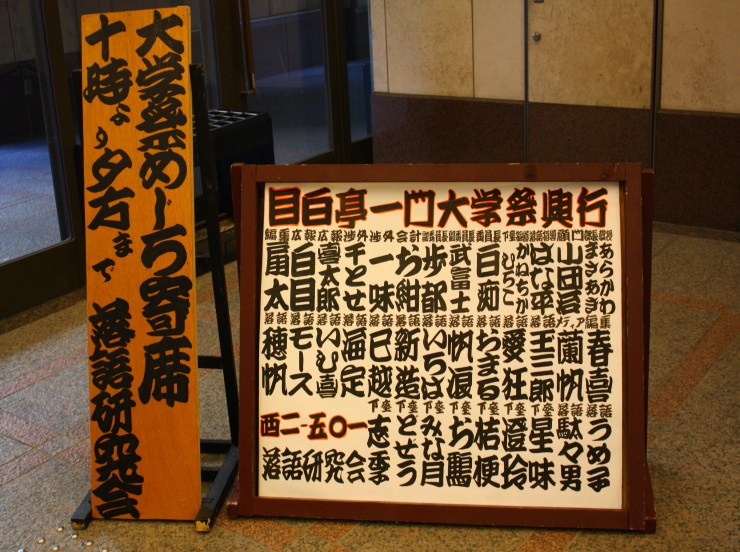 大学祭めじろ寄席
十時より夕方まで 落語研究会
目白亭一門大学祭興行
あらかわ
まさあき
はな平
かねちか
白痴
武富士
歩都
お紺
一味
千とせ
喜太郎
白目
扇太
編集
春喜
メディア
蘭帆
落語
王三郎
落語
愛狂
落語
ちまる
落語
帆浪
落語
いちは
落語
新造
落語
海定
落語
落語
モース
落語
穂帆
落語
うめ子
落語
駄々男
下座
星味
下座
澄玲
下座
桔梗
下座
下座
みな月
下座
とせう
下座
志季
西二-五〇一
落語研究会